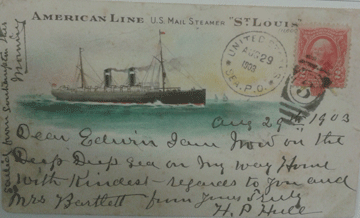 AMERICAN LINE U.S. MAIL STEAMER "ST. LOUIS
UNITED STATES
AUG 29
1903
SEA P.O.
Sailed from Southampton this
Morning
Aug 29th 1903
Dear Edwin I am Now on the
Deep Deep Sea on My way Home
With Kindest regards to you and
Mrs Bartlett from Yours Truly
H. P.